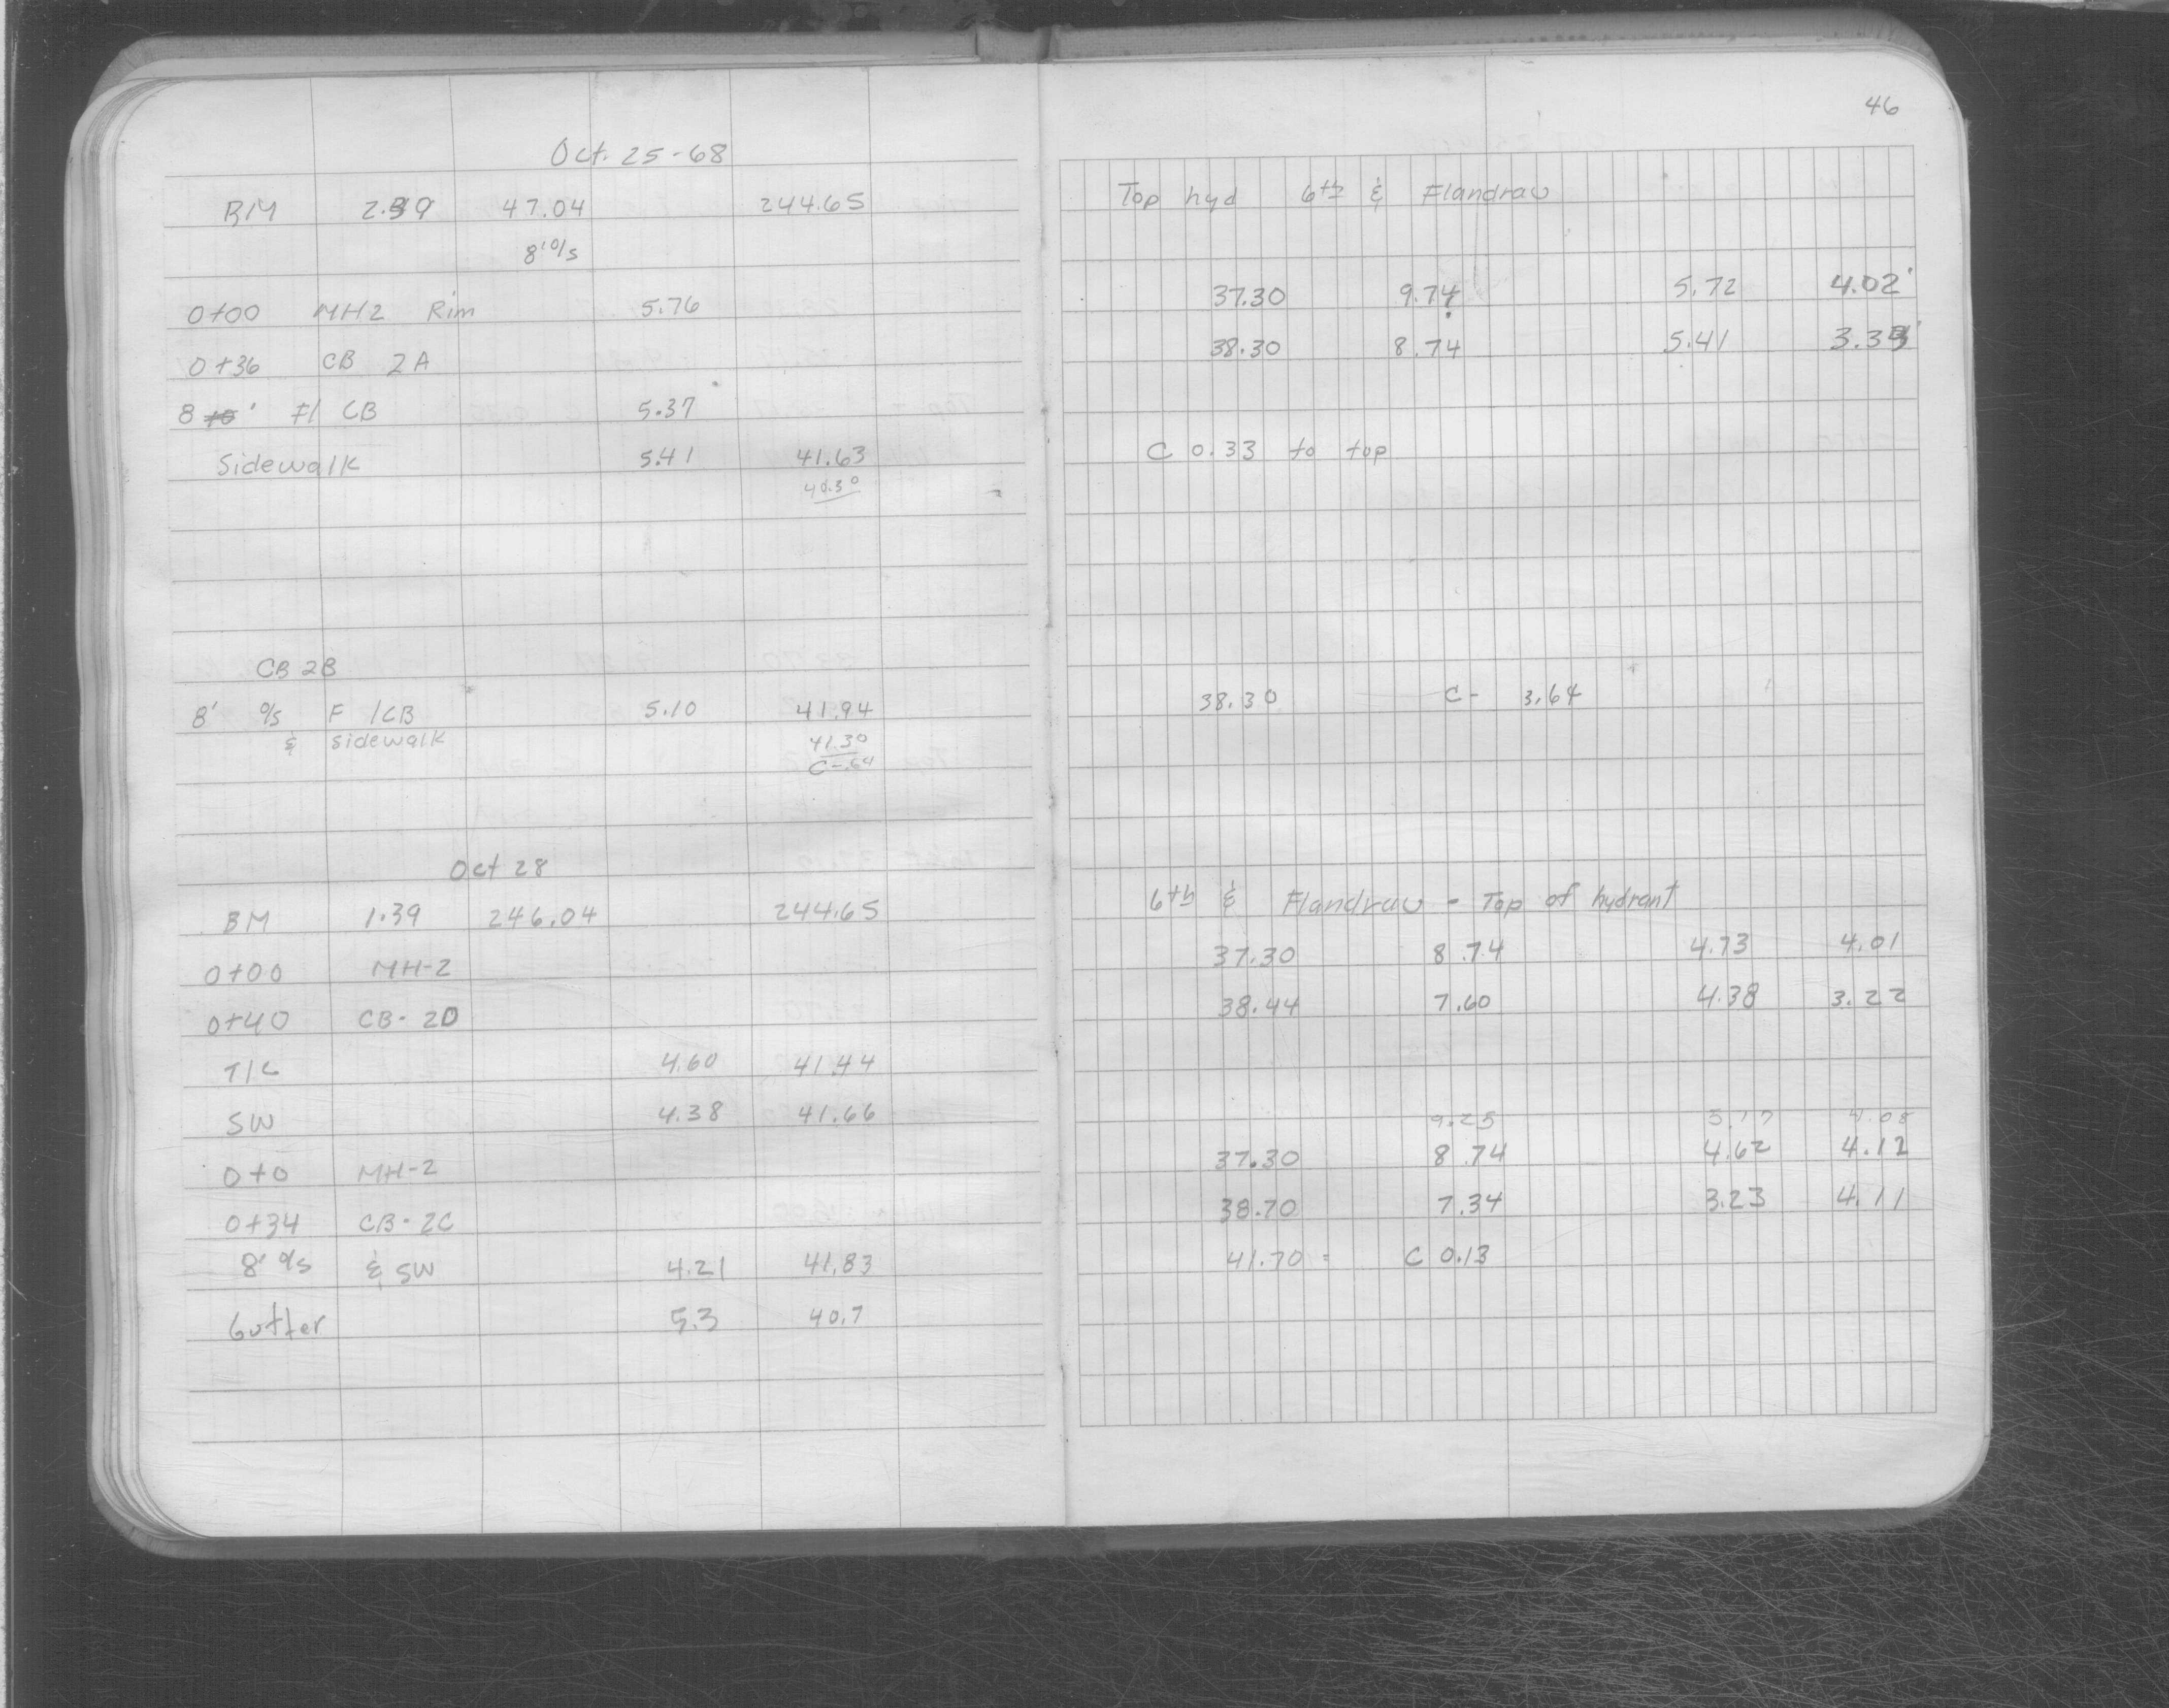 46
Oct. 25-68
BM 2.39 47.04 244.65
8' o/s
0+00 MH2 Rim 5.76
0+36 CB 2A
8 10 ' Fl CB 5.37
Sidewalk 5.41 41.63
CB 2B
8' o/s F /CB 5.10 41.94
& sidewalk 41.30
C-.64
Oct 28
BM 1.39 246.04 244.65
0+00 MH-2
0+40 CB-2D
T/C 4.60 41.44
SW 4.38 41.66
0+0 MH-2
0+34 CB-2C
8' o/s & SW 4.21 41.83
Gutter 5.3 40.7
Top hyd 6th & Flandrau
37.30 9.74 5.72 4.02'
38.30 8.74 5.41 3.33'
C 0.33 to top
38.30 C- 3.64
6th & Flandrau - Top of hydrant
37.30 8.74 4.73 4.01
38.44 7.60 4.38 3.22
9.25 5.17 4.08
37.30 8.74 4.62 4.12
38.70 7.34 3.23 4.11
41.70 = C 0.13